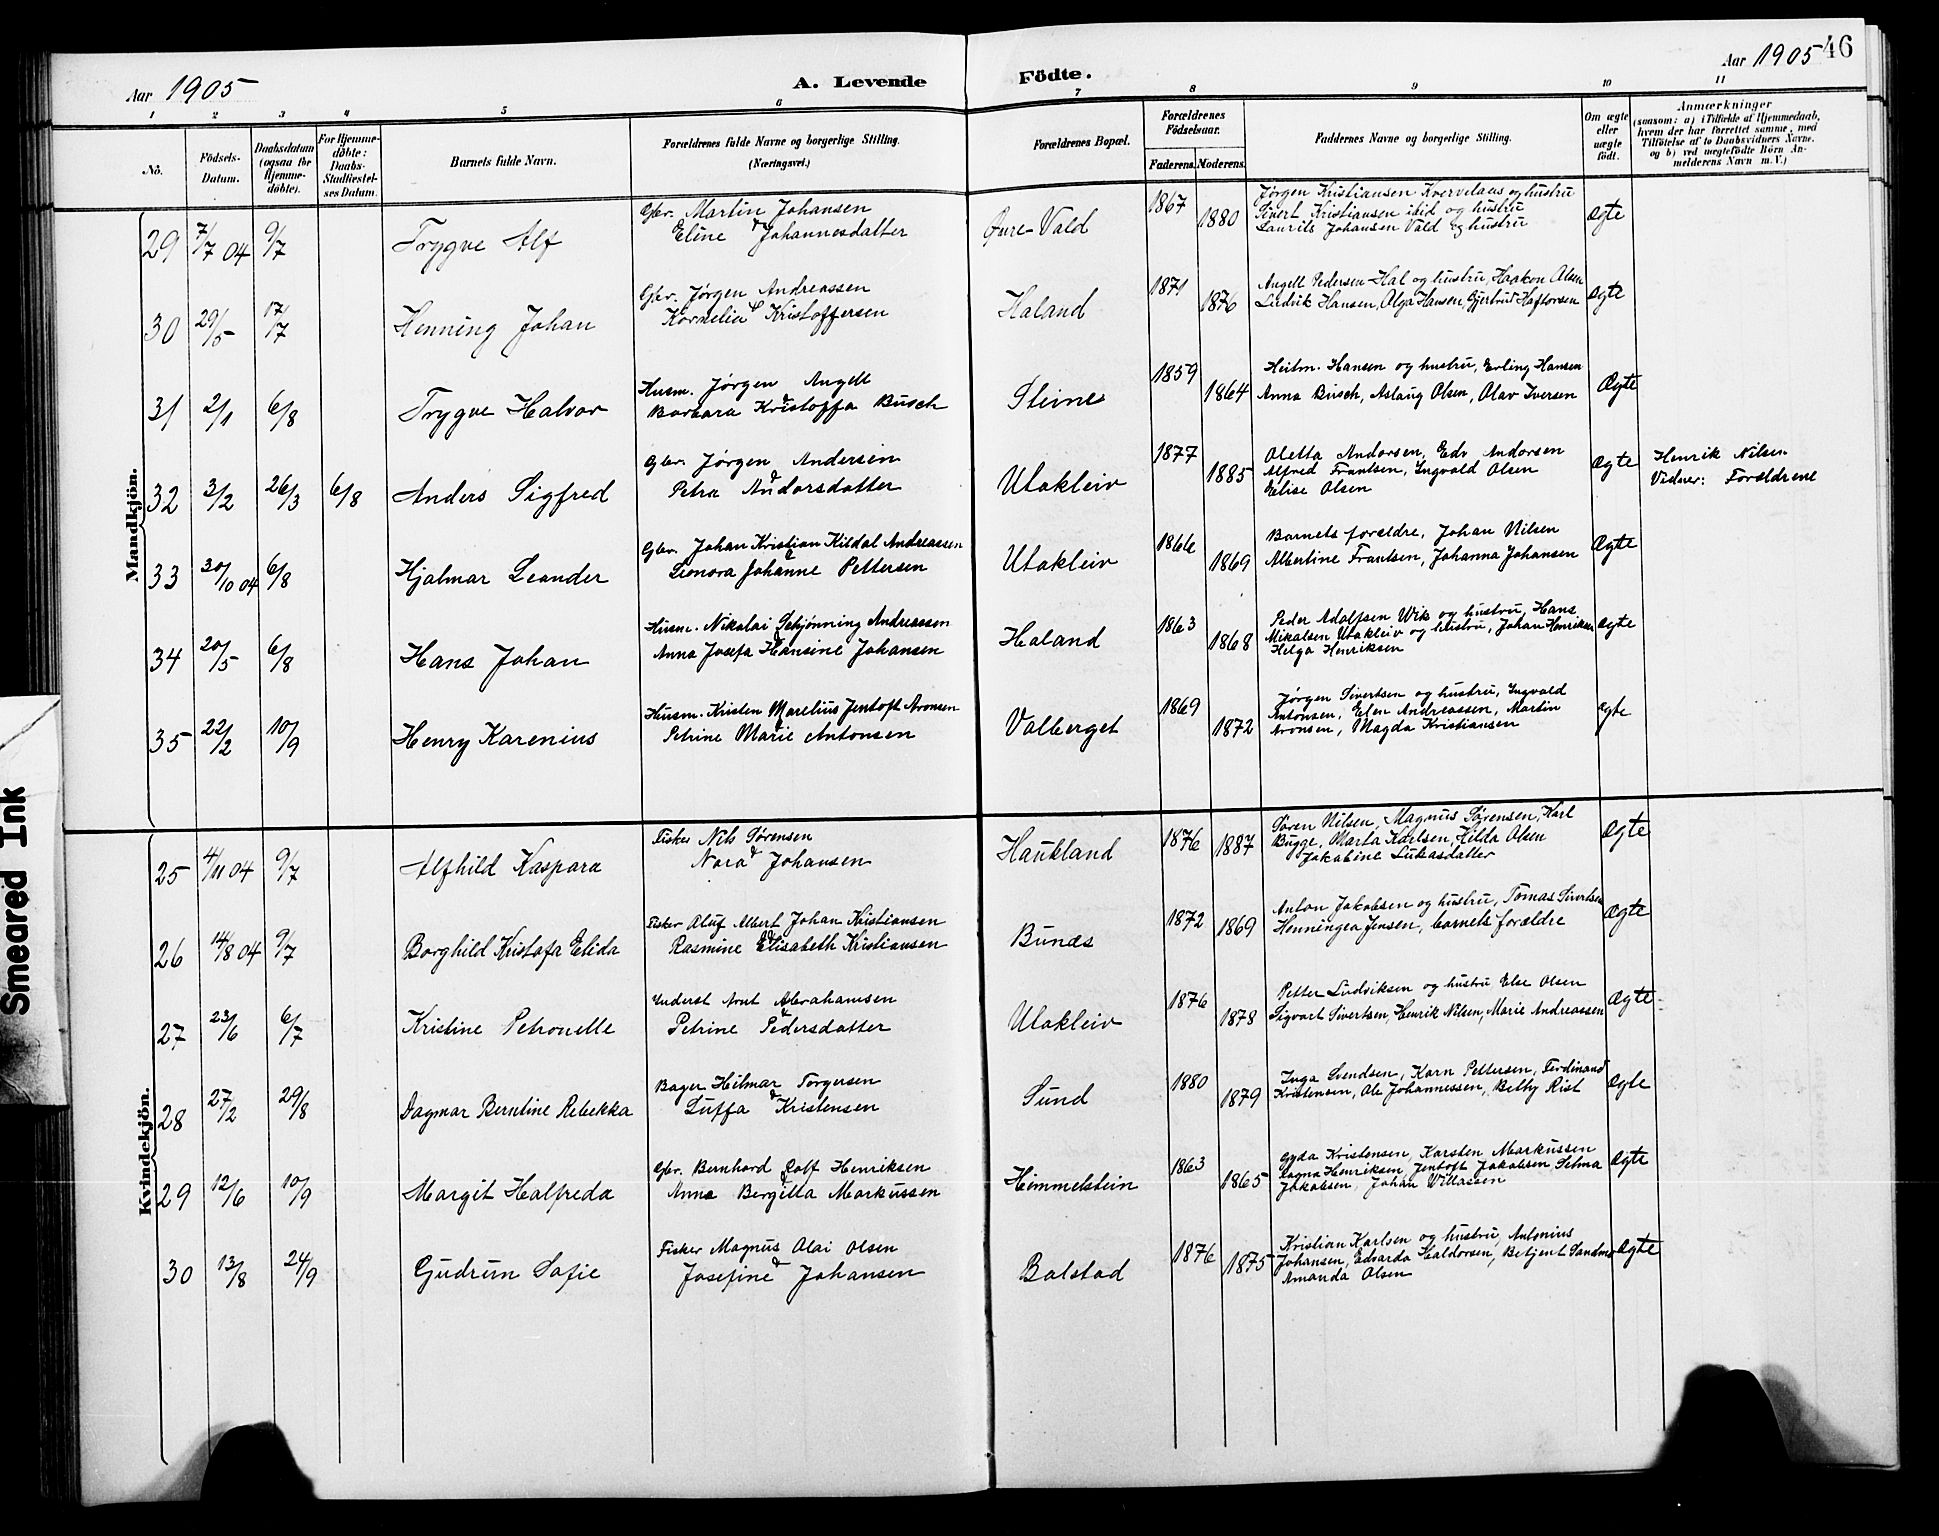 Aar 1905
A. Levende Födte.
Aar 1905
46
1 2 3 4 5 6 7 8 9 10 11
No.
Födsels-Datum.
Daabsdatum (ogsaa for Hjemme-döbte).
For Hjemme-döbte: Daabs-Stadfæstel-ses Datum.
Barnets fulde Navn.
Forældrenes fulde Navne og borgerlige Stilling. (Næringsvei.)
Forældrenes Bopæl.
Forældrenes Födselsaar.
Faderens. Moderens.
Faddernes Navne og borgerlige Stilling.
Om ægte eller uægte födt.
Anmærkninger
(saasom: a) i Tilfælde af Hjemmedaab, hvem der har forrettet samme, med Tilföielse af to Daabsvidners Navne, og b) ved uægtefödte Börn An-melderens Navn m. V.)
Mandkjön.
29 7/7 04 9/7 Trygve Alf
Gbr. Martin Johansen
& Eline Johannesdatter
Øure-Vald 1867 1880
Jørgen Kristiansen Kvervelaus og hustru
Sivert Kristiansen ibid og hustru
Laurits Johansen Vald og hustru
ægte
30 29/5 17/7 Henning Johan
Gbr. Jørgen Andreassen
& Kornelia Kristoffersen
Haland 1871 1876
Angell Pedersen Hal og hustru, Haakon Olsen
Ludvik Hansen, Olga Hansen, Gjertrud Haftorsen
ægte
31 2/1 6/8 Trygve Halvor
Husm. Jørgen Angell
& Barbara Kristoffa Busch
Steine 1859 1864
Heitm. Hansen og hustru, Erling Hansen
Anna Busch, Aslaug Olsen, Olav Iversen
Ægte
32 3/2 26/3 6/8 Anders Sigfred
Gbr. Jørgen Andersen
& Petra Andorsdatter
Utakleiv 1877 1885
Oletta Andorsen, Edv Andorsen
Alfred Frantsen, Ingvald Olsen
Elise Olsen
ægte
Henrik Nilsen
Vidner: Forældrene
33 30/10 04 6/8 Hjalmar Leander
Gbr. Johan Kristian Kildal Andreassen
& Leonora Johanne Pettersen
Utakleiv 1866 1869
Barnets forældre, Johan Nilsen
Albertine Frantsen, Johanna Johansen
Ægte
34 20/5 6/8 Hans Johan
Husm. Nikolai Schjønning Andreassen
& Anna Josefa Hansine Johansen
Haland 1863 1868
Peder Adolfsen Wik og hustru, Hans
Mikalsen Utakleiv og hustru, Johan Henriksen
Helga Henriksen
ægte
35 22/2 10/9 Henry Karenius
Husm. Kristen Marelius Jentoft Aronsen
& Petrine Marie Antonsen
Valberget 1869 1872
Jørgen Sivertsen og hustru, Ingvald
Antonsen, Elen Andreassen, Martin
Aronsen, Magda Kristiansen
ægte
Kvindekjön.
25 4/11 04 9/7 Alfhild Kaspara
Fisker Nils Sørensen
& Nora Johansen
Haukland 1876 1887
Søren Nilsen, Magnus Sørensen, Karl
Bugge, Marta Karlsen, Hilda Olsen
Jakobine Lukasdatter
ægte
26 14/8 04 9/7 Borghild Kristofa Elida
Fisker Aluf Albert Johan Kristiansen
& Rasmine Elisabeth Kristiansen
Bunæs 1872 1869
Anton Jakobsen og hustru, Tomas Sivertsen
Henningea Jensen, barnets forældre
Ægte
27 23/6 6/7 Kristine Petronelle
Inderst Arnt Abrahamsen
& Petrine Pedersdatter
Utakleiv 1876 1878
Petter Ludviksen og hustru Else Olsen
Sigvart Sivertsen, Henrik Nilsen, Marie Andreassen
Ægte
28 27/2 29/8 Dagmar Berntine Rebekka
Bager Hilmar Torgersen
& Luffa Kristensen
Sund 1880 1879
Inga Svendsen, Karn Pettersen, Ferdinand
Kristensen, Ole Johannessen, Bethy Rist
ægte
29 12/6 10/9 Margit Halfreda
Gbr. Bernhard Rolf Henriksen
& Anna Bergitta Markussen
Himmelstein 1863 1865
Gyda Kristensen, Karsten Markussen
Henriksen, Jentoft Jakobsen Selma
Jakobsen, Johan Willassen
ægte
30 13/8 24/9 Gudrun Sofie
Fisker Magnus Olai Olsen
& Josefine Johansen
Balstad 1876 1875
Kristian Karlsen og hustru, Antonius
Johansen, Edvarda Haldorsen, Betjent Sandmo
Amanda Olsen
Ægte
Smeared Ink